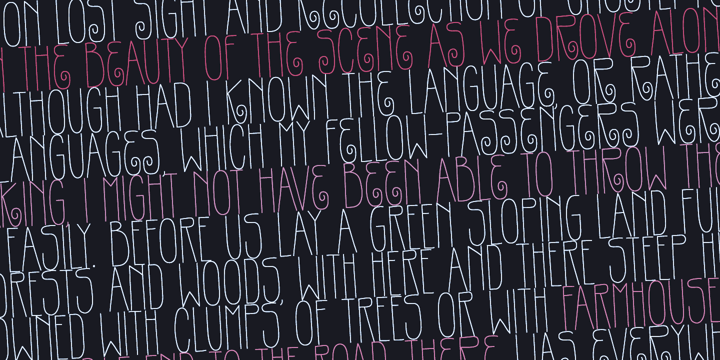 ON LOST SIGHT AND RECOLLECTION OF GHOSTLY
THE BEAUTY OF THE SCENE AS WE DROVE ALON
LTHOUGH HAD I KNOWN THE LANGUAGE, OR RATHE
ANGUAGES, WHICH MY FELLOW-PASSENGERS WER
KING, I MIGHT NOT HAVE BEEN ABLE TO THROW THE
EASILY. BEFORE US LAY A GREEN SLOPING LAND FU
RESTS AND WOODS, WITH HERE AND THERE STEEP H
OWNED WITH CLUMPS OF TREES OR WITH FARMHOUSE
END TO THE ROAD. THERE WAS EVERYW